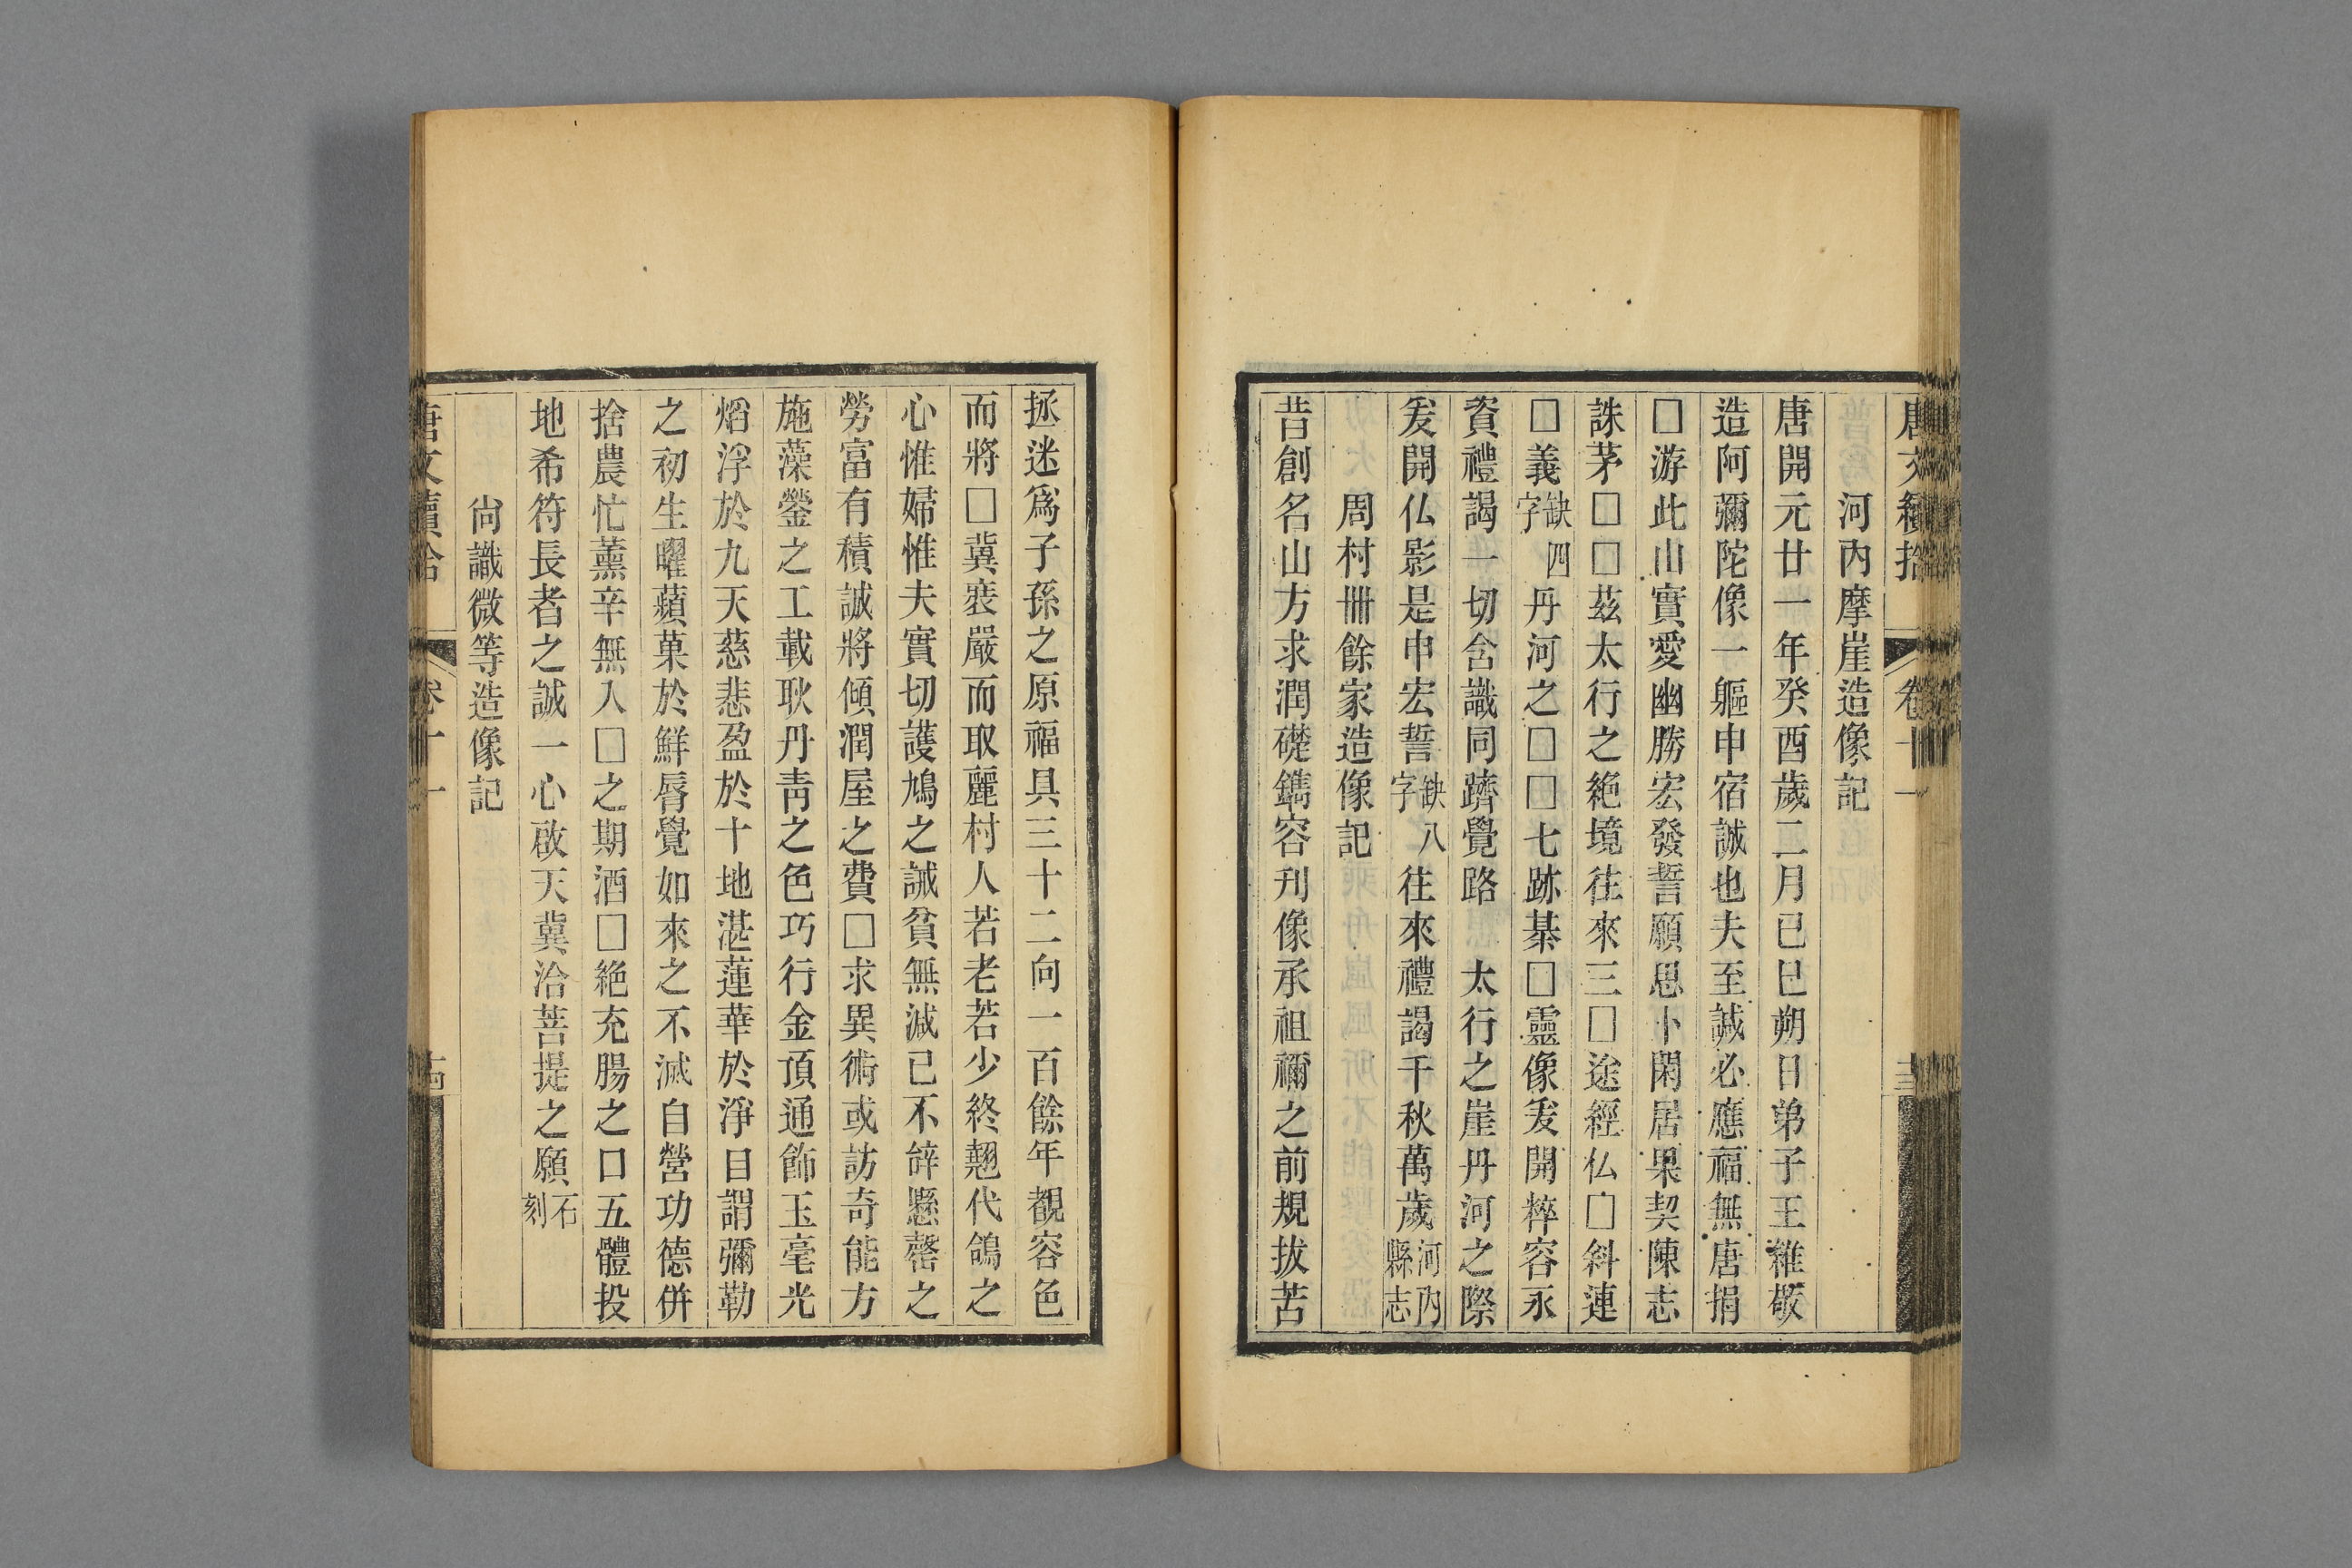 唐文續拾 卷十一 十三
河內摩崖造像記
唐開元廿一年癸酉歲二月已巳朔日弟子王維敬
造阿彌陀像一軀申宿誠也夫至誠必應福無唐捐
□游此山實愛幽勝宏發誓願思卜閑居果契陳志
誅茅□□茲太行之絕境往來三□途經仏□斜連
□義缺四字丹河之□□七跡基□靈像爰開粹容永
資禮謁一切含識同躋覺路 太行之崖丹河之際
爰開仏影是申宏誓缺八字往來禮謁千秋萬歲河內縣志
周村卌餘家造像記
昔創名山方求潤礎鐫容刊像承祖禰之前規拔苦
拯迷爲子孫之原福具三十二向一百餘年覩容色
而將□冀裝嚴而取麗村人若老若少終翹代鴿之
心惟婦惟夫實切護鳩之誠貧無減已不辭懸罄之
勞富有積誠將傾潤屋之費□求異術或訪奇能方
施藻鎣之工載耿丹靑之色巧行金頂通飾玉毫光
熖浮於九天慈悲盈於十地湛蓮華於淨目謂彌勒
之初生曜蘋菓於鮮脣覺如來之不滅自營功德併
捨農忙薰辛無入□之期酒□絕充腸之口五體投
地希符長者之誠一心啟天冀洽菩提之願石刻
尙識微等造像記
唐文續拾 卷十一 十四